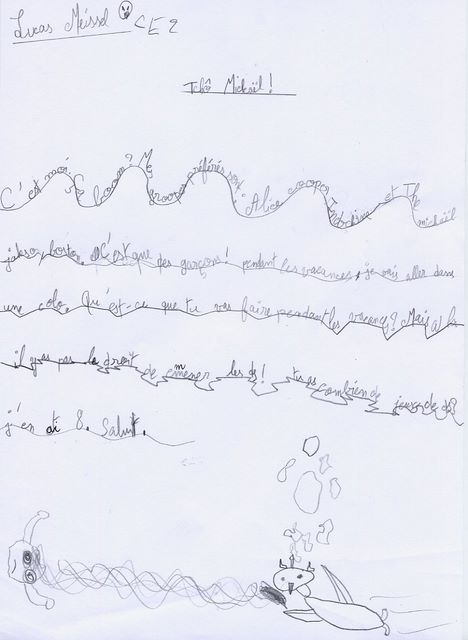 Lucas Meissel CE2
Tchô Mickaël !
C'est moi boom ? Me groupes préférés sont : Alice cooper Indochine et The mickaël
jakson, boston C'est que des garçons ! pendant les vacances, je vais aller dans
une colo. Qu'est-ce que tu vas faire pendant les vacances ? Mais à la
il y as pas le droit de emmener les ds ! tu as combien de jeux de ds ?
j'en ai 8. Salut.